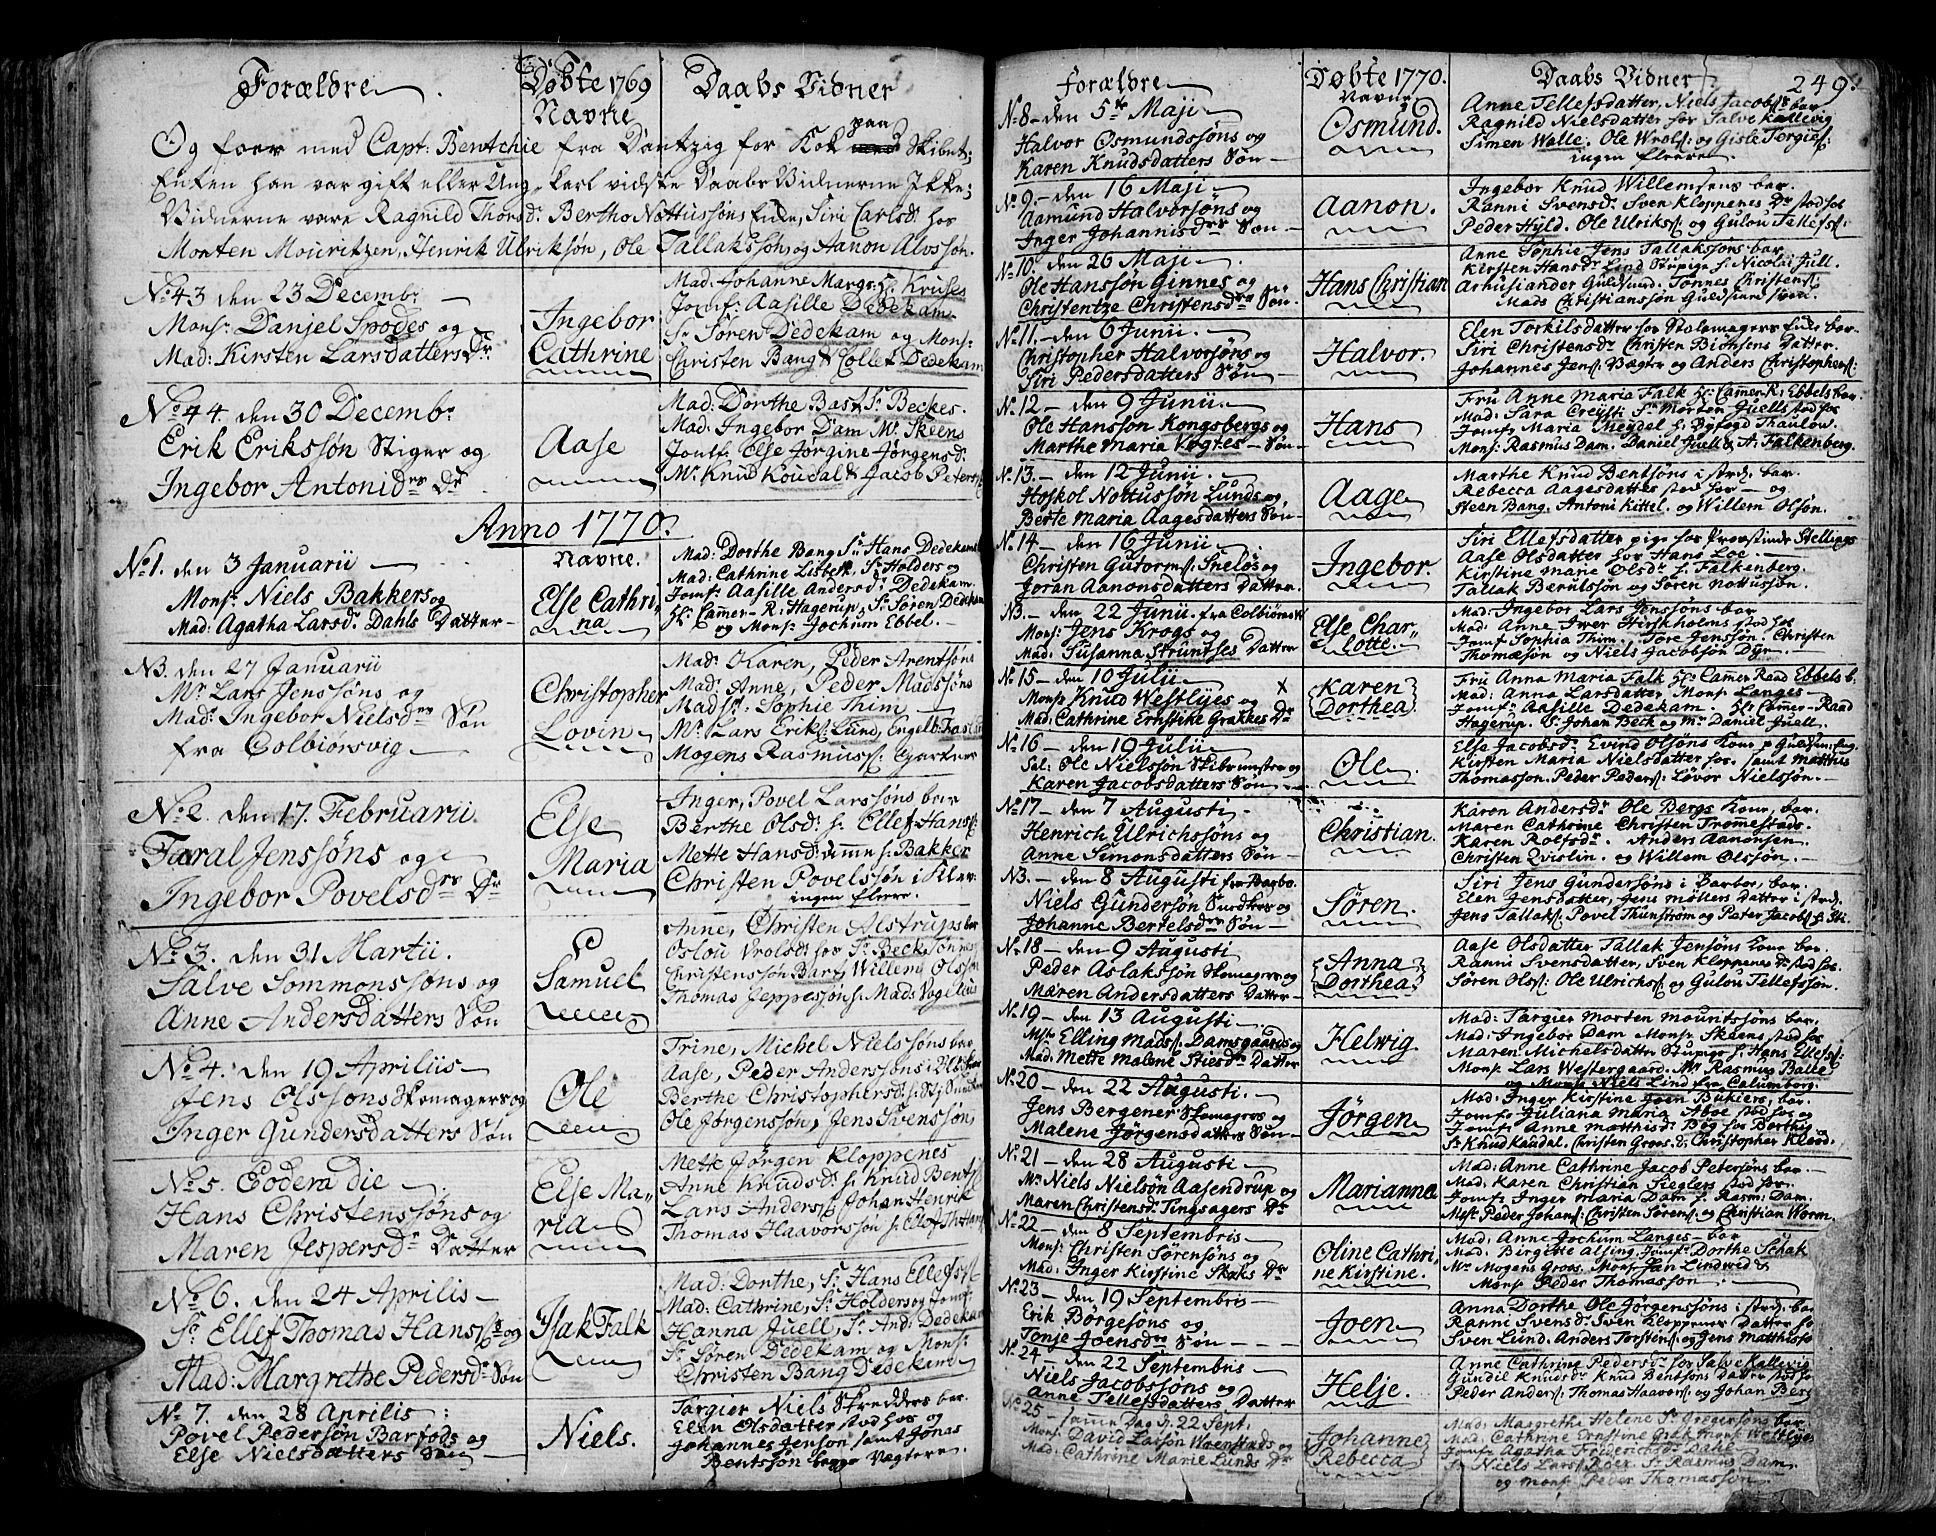 Forældre
Døbte 1769
Navne
Daabs Vidner
Og foer med Capt: Bentchie fra Dantzig for Kok paa Skibet;
Enten han var gift eller Ung-karl vidste Daabs Vidnerne Ikke;
Vidnerne vare Ragnild Thorsd: Bertho Nottussøns Enke, Siri Carlsd: hos
Morten Mouritzen, Henrik Ulriksøn, Ole Tallakssøn og Aanon Alvssøn.
No 43 den 23 Decembr
Mons: Danjel Spodes og
Mad: Kirsten Larsdatters Dr
Ingebor
Cathrine
Mad: Johanne Margr: H: Kruses
Jomf: Aasille Dedekam
Sr Søren Dedekam og Mons:
Christen Bang & Collet Dedekam
No 44. den 30 Decembr
Erik Erikssøn Stiger og
Ingebor Antonidrs Dr
Aase
Mad: Dorthe Bast Sr Beckes.
Mad: Ingebor Dam Mr Skeens
Jomf: Else Jørgine Jørgensdr
Mr Knud Koudal & Jacob Peters:
Anno 1770.
Navne.
No 1. den 3 Januarii
Mons: Niels Bakkers og
Mad: Agatha Larsdr Dahls Datter
Else Cathri-
na
Mad: Dorthe Bang Sr Hans Dedekams
Mad: Cathrine Lisbeth, Sr Holders og
Jomf: Aasille Andersdr Dedekam.
H: Cammer-R: Hagerup, Sr Søren Dedekam
og Mons: Jochum Ebbel.
NB. den 27 Januarii
Mr Lars Jenssøns og
Mad: Ingebor Nielsdrs Søn
fra Colbiørsvig
Christopher
Lovin
Mad: Karen, Peder Arentsøns
Mad: Anne, Peder Madssøns
Mads: Sophie Thim
Mr Lars Eriks: Lund, Engelb:
Mogens Rasmuss: Gartner
No 2. den 17. Februarii
Taral Jenssøns og
Ingebor Povelsdrs Dr
Else
Maria
Inger, Povel Larssøns bar
Berthe Olsd: h: Ellef Hans:
Mette Hansd: Amme h: Bakker
Christen Povelssøn i Klev.
ingen fleere
No 3. den 31 Martii.
Salve Sommonssøns og
Anne Andersdatters Søn
Samuel
Anne, Christen Alstrups bar
Oslou Vrolsdr hos Sr Beck Tønnes
Christenssøn Barf, Willem Olssøn
Thomas Jeppessøn h: Mads Vogelius
No 4. den 19 Apriliis
Jens Olssøns Skomagers og
Inger Gundersdatters Søn
Ole
Trine, Michel Nielssøns bar
Aase, Peder Anderssøns
Berthe Christophersd:
Ole Jørgenssøn, Jens Svenssøn
No 5. Eodem die
Hans Christenssøns og
Maren Jespersdr Datter
Else Ma-
ria
Mette Jørgen Kloppenes
Anne Knudsdr h: Knud Bents:
Lars Anders: Johan Henrik
Thomas Haavorssøn h:
No 6. den 24 Aprilis
Sr Ellef Thomas Hans: og
Mad: Margrethe Pedersdr Søn
Isak Falk
Mad: Dorthe, Sr Hans Ellefs:
Mad: Cathrine, Sr Holders og Jomf:
Hanna Juell, Sr And: Dedekam
Sr Søren Dedekam og Mons:
Christen Bang Dedekam
No 7. den 28 Aprilis
Povel Pedersøn Barfods og
Else Nielsdatters Søn
Niels.
Targier Niels Skredders bar.
Elen Olsdatter stod hos og
Johannes Jensøn samt Jonas
Bentssøn begge Vægtere
Forældre
Døbte 1770.
Navne
Daabs Vidner
249.
No 8 den 5te Maji
Halvor Osmundssøns og
Karen Knudsdatters Søn
Osmund.
Anne Tellefsdatter, Niels Jacobs: bar.
Ragnild Nielsdatter for Salve Kallevig
Simen Walle. Ole Wrols: og Gisle Torgies:
ingen fleere
No 9. den 16 Maji
Aamund Halvorsøns og
Inger Johannisdrs Søn
Aanon.
Ingebor Knud Willemsens bar.
Ranni Svensdr Sven Kloppenes Dr stod hos
Peder Hyld. Ole Ulriks: og Gulou Tellefs:
No 10. den 26 Maji
Ole Hanssøn Ginnes og
Christentze Christensdrs Søn
Hans Christian
Anne Sophie Jens Tallakssøns bar.
Kirsten Hansdr Lind Stupige h. Nicolai Jull.
Arhusiander Guldsmed. Tønnes Christens:
Mads Christianssøn Guldsmed svend.
No 11. den 6 Junii
Christopher Halvorsøns og
Siri Pedersdatters Søn
Halvor.
Elen Torkilsdatter hos Stolemagers Enke bar.
Siri Christensdr Christen Bichsens Datter.
Johannes Jens: Vægter og Anders Christophers:
No 12 den 9 Junii.
Ole Hanssøn Kongsbergs og
Marthe Maria Vogtes Søn
Hans
Fru Anne Maria Falk Hr Camer R: Ebbels bar.
Mad: Sara Creysti Sr Morten Juells stod hos
Jomf: Maria Meydel h: Byfogd Thaulow.
Mons: Rasmus Dam. Daniel Juell & A: Falkenberg.
No 13. den 12 Junii
Hoskol Nottussøn Lunds og
Berte Maria Aagesdatters Søn
Aage
Marthe Knud Bentsøns i strd. bar.
Rebecca Aagesdatter stod hos og
Steen Bang. Antoni Kittel. og Willem Olsøn.
No 14 den 16 Junii
Christen Gutorms: Sneløs og
Joran Aanonsdatters Datter
Ingebor.
Siri Ellefsdatter pige hos Provstinde Stellings
Aase Olsdatter for Hans Loe.
Kirstine Marie Olsdr h: Falkenberg.
Tallak Berulssøn og Søren Nottussøn.
NB. den 22 Junii. fra Colbiørnsv:
Mons: Jens Krogs og
Mad: Susanna Struntses Datter
Else Char-
lotte.
Mad: Ingebor Lars Jenssøns bar
Mad: Anne Iwer Hirstholms stod hos
Jomf Sophia Thim. Tore Jenssøn. Christen
Thomæsøn og Niels Jacobsøn Dyr.
No 15 den 10 Julii
Mons: Knud Westlyes og
Mad: Cathrine Ernstike Grakkes Dr
Karen
Dorthea
Fru Anna Maria Falk Hr Camer Raad Ebbels b.
Mad: Anna Larsdatter Mons: Langes
Jomf: Aasille Dedekam. Hr Camer-Raad
Hagerup. Sr Johan Beck og Mr Daniel Juell.
No 16 den 19 Julii
Sal: Ole Nielssøn Skibsmster og
Karen Jacobsdatters Søn
Ole
Else Jacobsdr Evind Olsøns Kone
Kirsten Maria Nielsdatter hos. samt Matthis
Thomassøn. Peder Peders: Løvor Nielssøn.
No 17 den 7 Augusti
Henrich Ulrichssøns og
Anne Simonsdatters Søn
Christian.
Karen Andersdr Ole Bergs Kone bar.
Maren Cathrine Christen Tromestads.
Karen Rolfsdr Anders Aanonsen.
Christen Qvislin. og Willem Olssøn.
NB. den 8 Augusti fra Barbo
Niels Gundersøn Snedkers og
Johanne Bertelsdrs Søn
Søren.
Siri Jens Gundersøns i Barbo, bar.
Elen Jensdatter, Jens møllers Datter i strd.
Jens Tallaks: Povel Thunstrøm og Peter Jacobs:
No 18 den 9 Augusti
Peder Aslakssøn Skomagers og
Maren Andersdatters Datter
Anna
Dorthea
Aase Olsdatter Tallak Jensøns Kone bar.
Ranni Svensdatter, Sven Kloppenes Dr stod hos
Søren Ols: Ole Ulrichs: og Gulou Tellefssøn.
No 19 den 13 Augusti
Msr Elling Mads: Damsgaards og
Mad: Mette Malene Stiesdrs Datter
Helwig
Mad: Targier Morten mouritssøns bar,
Mad: Ingebor Dam Monsr Skeens stod hos
Maren Michelsdatter Stupige h. Hans Ellefs:
Monsr Lars Westergaard. Mr Rasmus Balle
og Monsr Niels Lind fra Calundborg.
No 20 den 22 Augusti
Jens Bergener Skomagers og
Malene Jørgensdatters Søn
Jørgen
Mad: Inger Kirstine Joen Bukiers, bar.
Jomfr Juliana Maria Aboe stod hos og
Jomfr Anne Matthisdr Bøg for Borthig
Sr Knud Kaudal. Christen Groos & Christopher Klood.
No 21 den 28 Augusti
Mr Niels Nielsøn Aasendrup og
Maren Christensdr Tingsagers Dr
Marianne
Mad: Anne Cathrine Jacob Petersøns bar.
Mad: Karen Christian Sieglers stod hos.
Jomfr Inger Maria Dam h: Rasm: Dam.
Mesr Peder Johans: Christen Sørens: og Christian Worm.
No 22. den 8 Septembris
Mons: Christen Sørensøns og
Mad: Inger Kirstine Skaks Dr
Oline Cathri-
ne Kirstine.
Mad: Anne Jochum Langes bar
Mad: Birgitte Alsing. Jomf: Dorthe Schak
Mr Mogens Groos. Monsr Jan Lindwid &
Monsr Peder Thomassøn
No 23 den 19 Septembris
Erik Børgesøns og
Tonje Joensdrs Søn
Joen
Anna Dorthe Ole Jørgenssøns i strd. bar
Ranni Svensdr Sven Kloppenes Datter
Sven Lund. Anders Torstens: og Jens Matthisso
No 24 den 22 Septembris
Niels Jacobssøns og
Anne Tellefsdatters Datter
Helje.
Anne Cathrina Pedersdr for Salve Kallevig
Gundil Knudsdr Knud Bentsøns Datter
Peder Anders: Thomas Haavors: og Johan Berg
No 25 samme Dag d. 22 Sept.
Mons: David Larsøn Wrenstads og
Mad: Cathrine Marie Lunds Dr
Johanne
Rebecca
Mad: Margretha Helene Sr Gregersøns bar.
Mad: Cathrine Ernstine Grak mons: Westlyes
Jomfr Agatha Fridericsdr Dahl
Sr Niels Lars: Boer. Sr Rasmus Dam
og mons: Peder Thomassøn